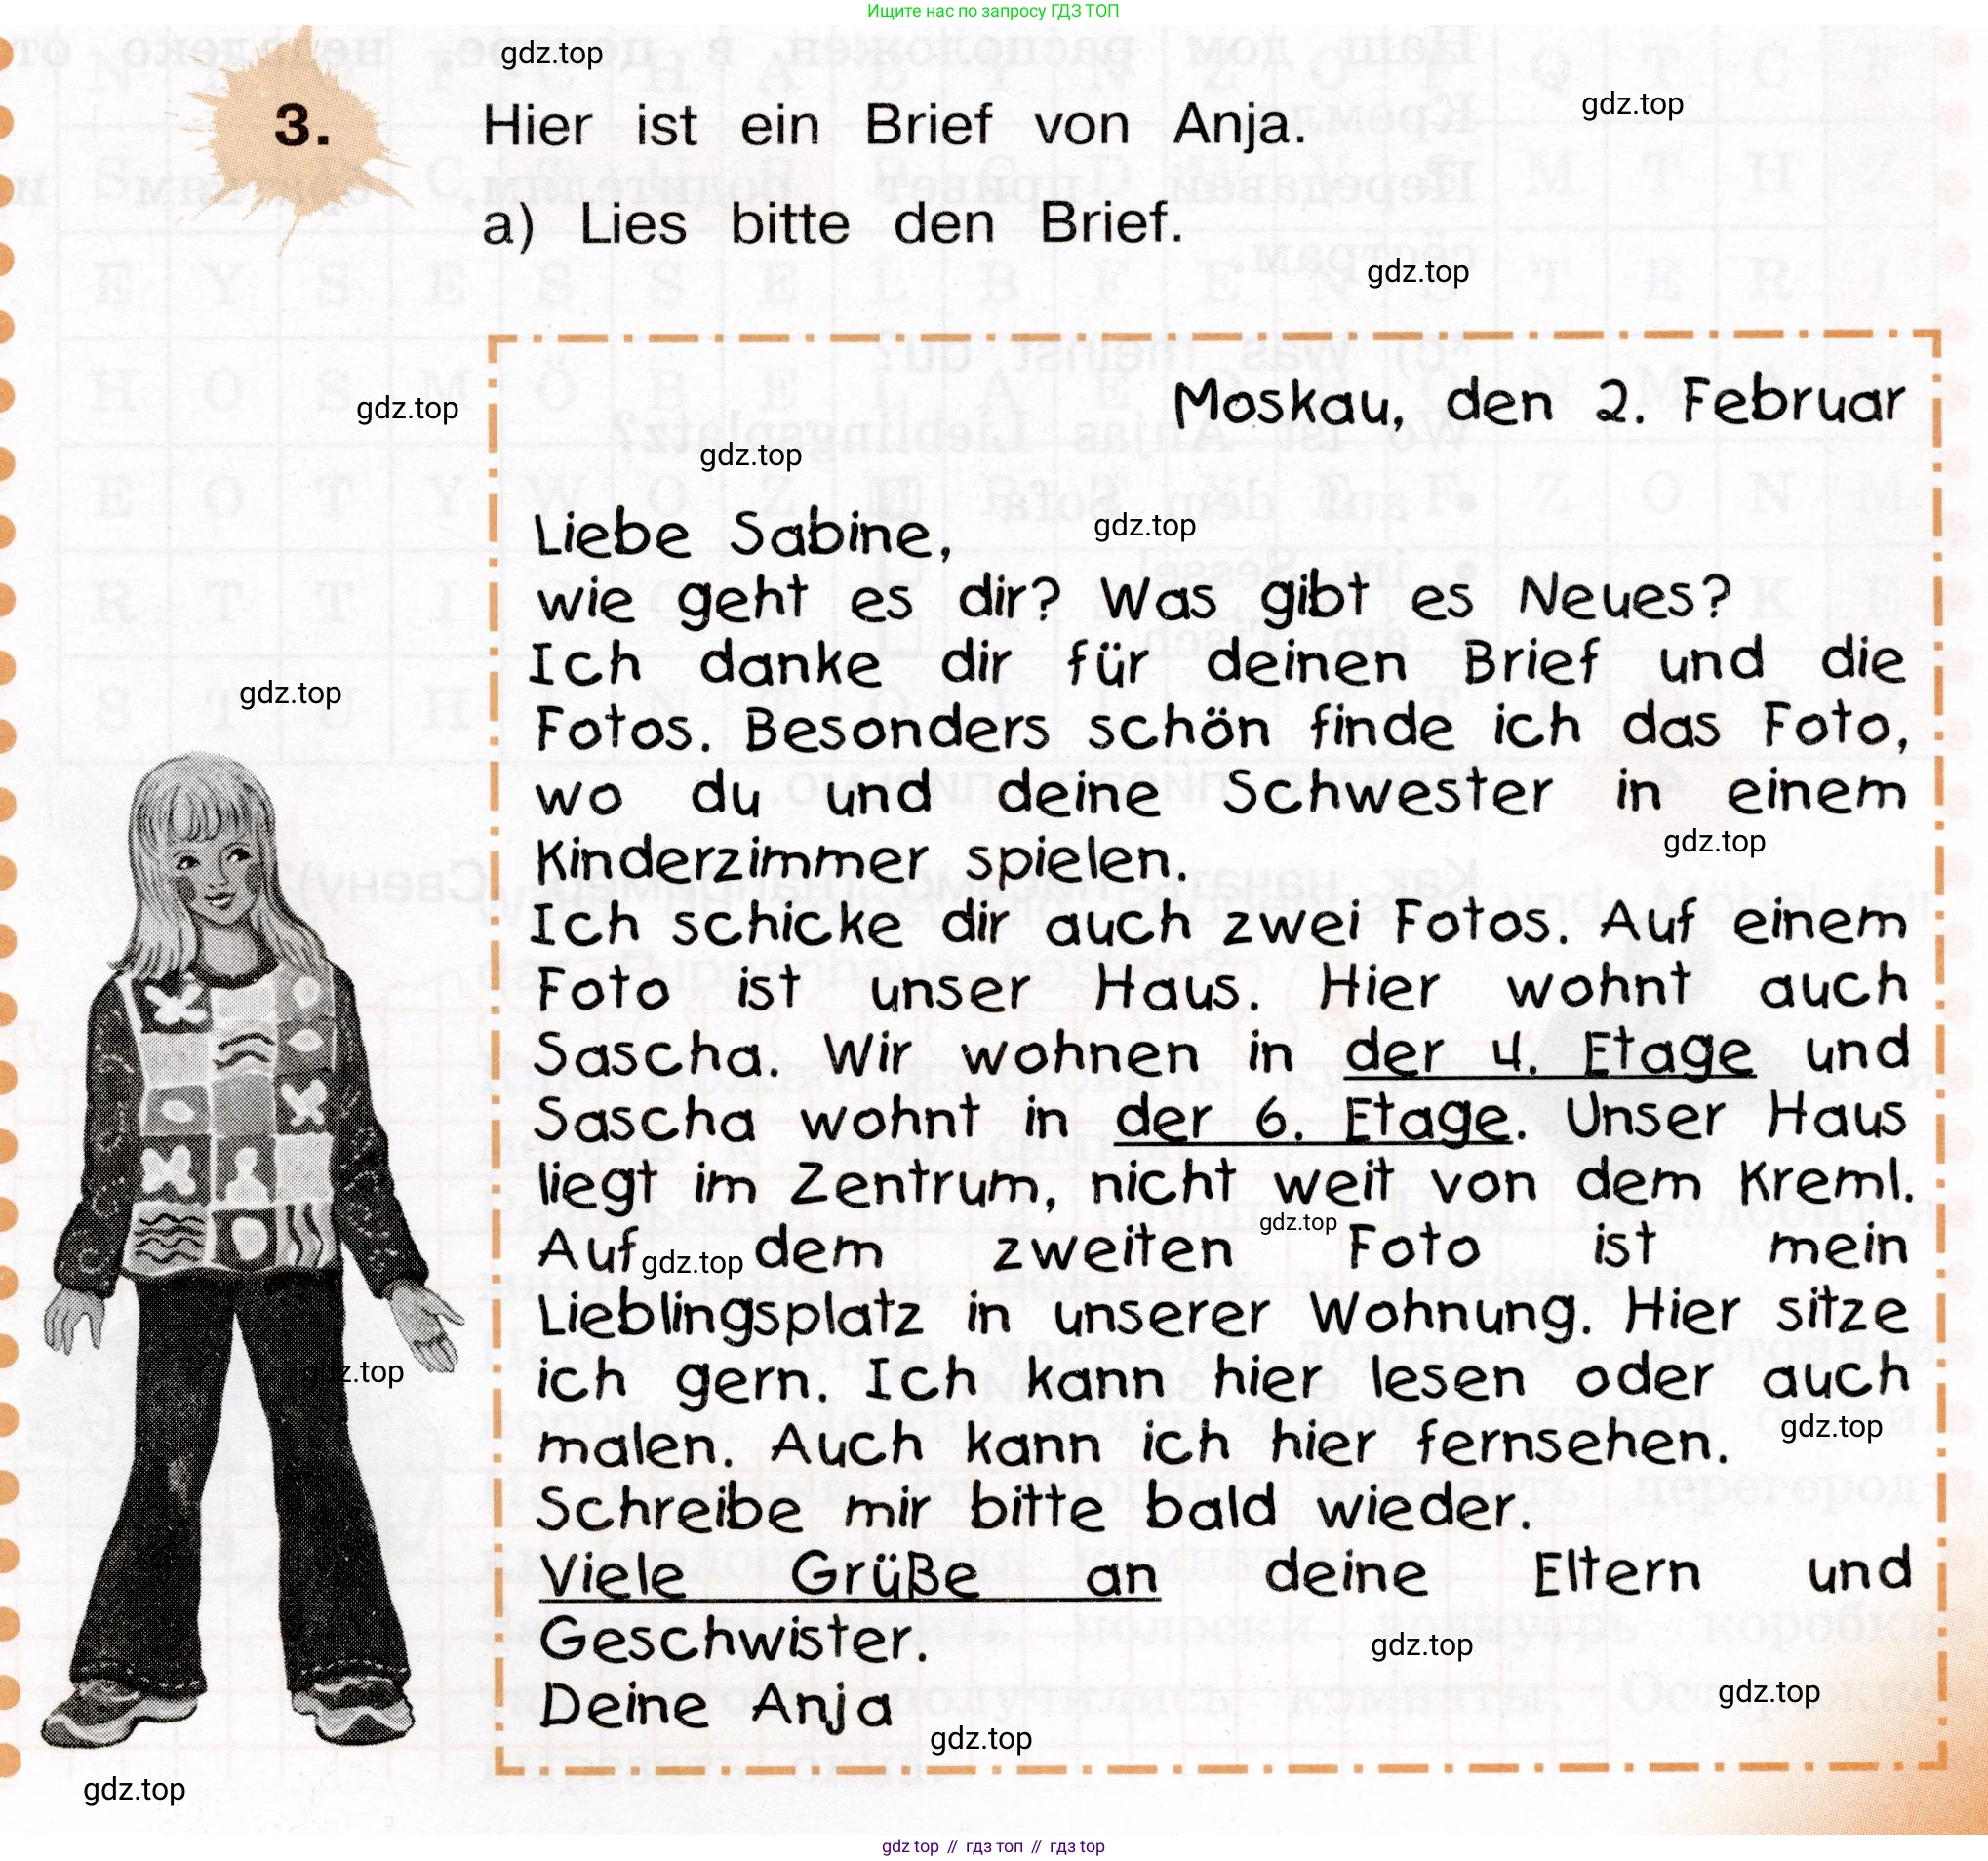 Ищите нас по запросу ГДЗ ТОП
gdz.top
3. Hier ist ein Brief von Anja.
gdz.top
a) Lies bitte den Brief.
gdz.top
Moskau, den 2. Februar
gdz.top
gdz.top
Liebe Sabine,
gdz.top
wie geht es dir? Was gibt es Neues?
Ich danke dir für deinen Brief und die
gdz.top
Fotos. Besonders schön finde ich das Foto,
wo du und deine Schwester in einem
gdz.top
Kinderzimmer spielen.
Ich schicke dir auch zwei Fotos. Auf einem
Foto ist unser Haus. Hier wohnt auch
Sascha. Wir wohnen in der 4. Etage und
Sascha wohnt in der 6. Etage. Unser Haus
liegt im Zentrum, nicht weit von dem Kreml.
gdz.top
Auf dem zweiten Foto ist mein
gdz.top
Lieblingsplatz in unserer Wohnung. Hier sitze
ich gern. Ich kann hier lesen oder auch
gdz.top
gdz.top
malen. Auch kann ich hier fernsehen.
Schreibe mir bitte bald wieder.
Viele Grüße an deine Eltern und
Geschwister.
gdz.top
gdz.top
Deine Anja
gdz.top
gdz.top
gdz top // гдз топ // гдз top